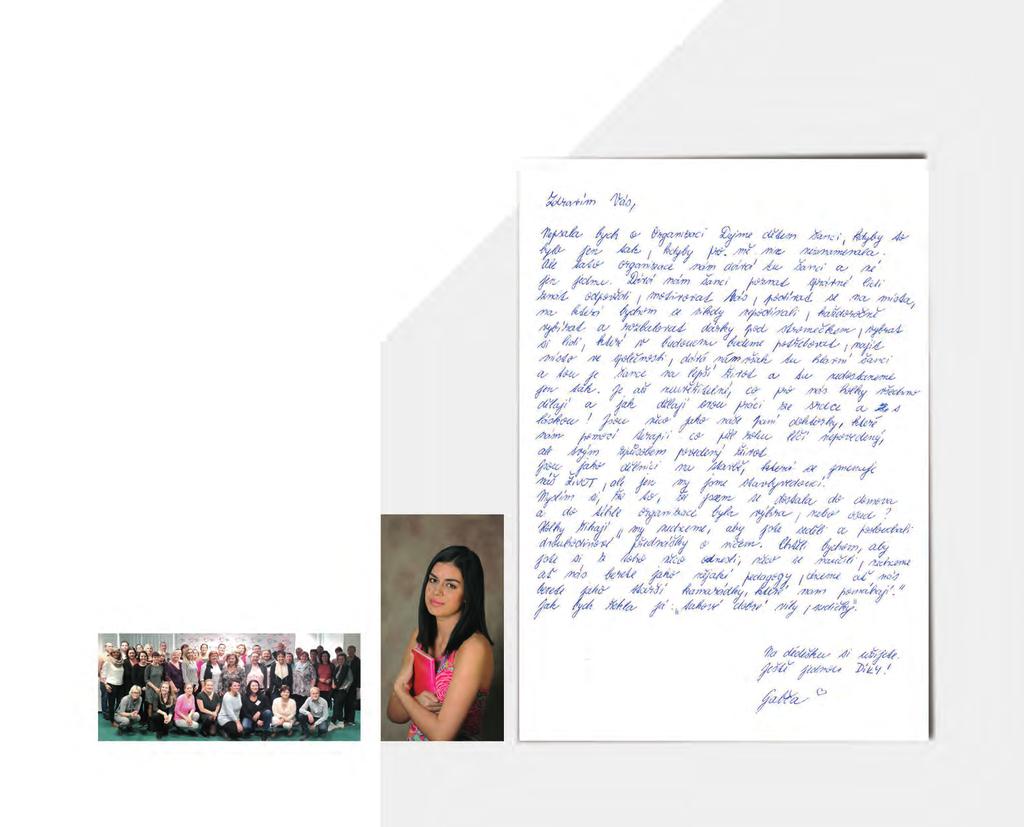 Zdravím Vás,
Nepsala bych o Organizaci Dejme dětem šanci, kdyby to
bylo jen tak, kdyby pro mě nic neznamenala.
Ale tato organizace nám dává tu šanci a né
jen jednu. Dává nám šanci poznat správné lidi
znát odpovědi, motivovat Nás, podívat se na místa,
na která bychom se nikdy nepodívali, každoročně
vybírat a rozbalovat dárky pod stromečkem, vybrat
si lidi, které v budoucnu budeme potřebovat, najít
místo ve společnosti, dává nám však tu hlavní šanci
a tou je šance na lepší život a tu nedostaneme
jen tak. Je až neuvěřitelné, co pro nás holky všechno
dělají a jak dělají svou práci ze srdce a s
láskou! Jsou něco jako naše paní doktorky, které
nám pomocí terapií co půl roku léčí nepovedený,
ale svým způsobem povedený život.
Jsou jako dělníci na stavbě, která se jmenuje
náš ŽIVOT, ale jen my jsme stavbyvedoucí.
Myslím si, že to, že jsem se dostala do domova
a do téhle organizace byla výhra, nebo osud?
Holky říkají „my nechceme, aby jste seděli a poslouchali
dvouhodinové přednášky o ničem. Chtěli bychom, aby
jste si z toho něco odnesli, něco se naučili, nechceme
ať nás berete jako nějaké pedagogy, chceme ať nás
berete jako starší kamarádky, které vám pomáhají."
Jak bych řekla já: „takové dobré víly, sudičky".
Na dědečku si užijete.
Ještě jednou DÍKY!
Gabča ♡